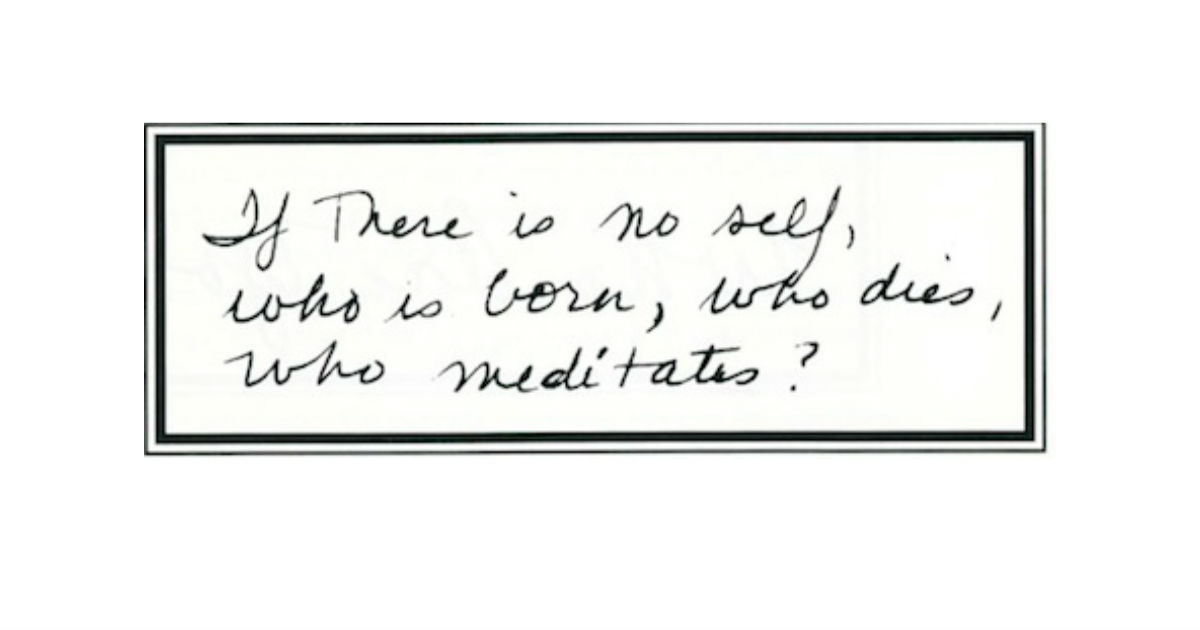 If There is no self,
who is born, who dies,
who meditates?